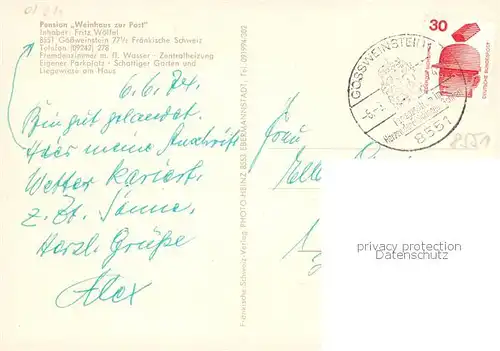 Pension „Weinhaus zur Post"
Inhaber: Fritz Wölfel
8551 Gößweinstein 77½ Fränkische Schweiz
Telefon (09242) 278
Fremdenzimmer m. fl. Wasser – Zentralheizung
Eigener Parkplatz - Schattiger Garten und
Liegewiese am Haus
6. 6. 74.
Bin gut gelandet.
Hier meine Anschrift
Wetter kariert.
z. Zt. Sonne.
Herzl. Grüße
Alex
Fränkische-Schweiz-Verlag PHOTO-HEINZ 8553 EBERMANNSTADT, Tel. 09194/202
Frau
30
DEUTSCHE BUNDESPOST
GÖSSWEINSTEIN 1
8551
8551
privacy protection
watermark